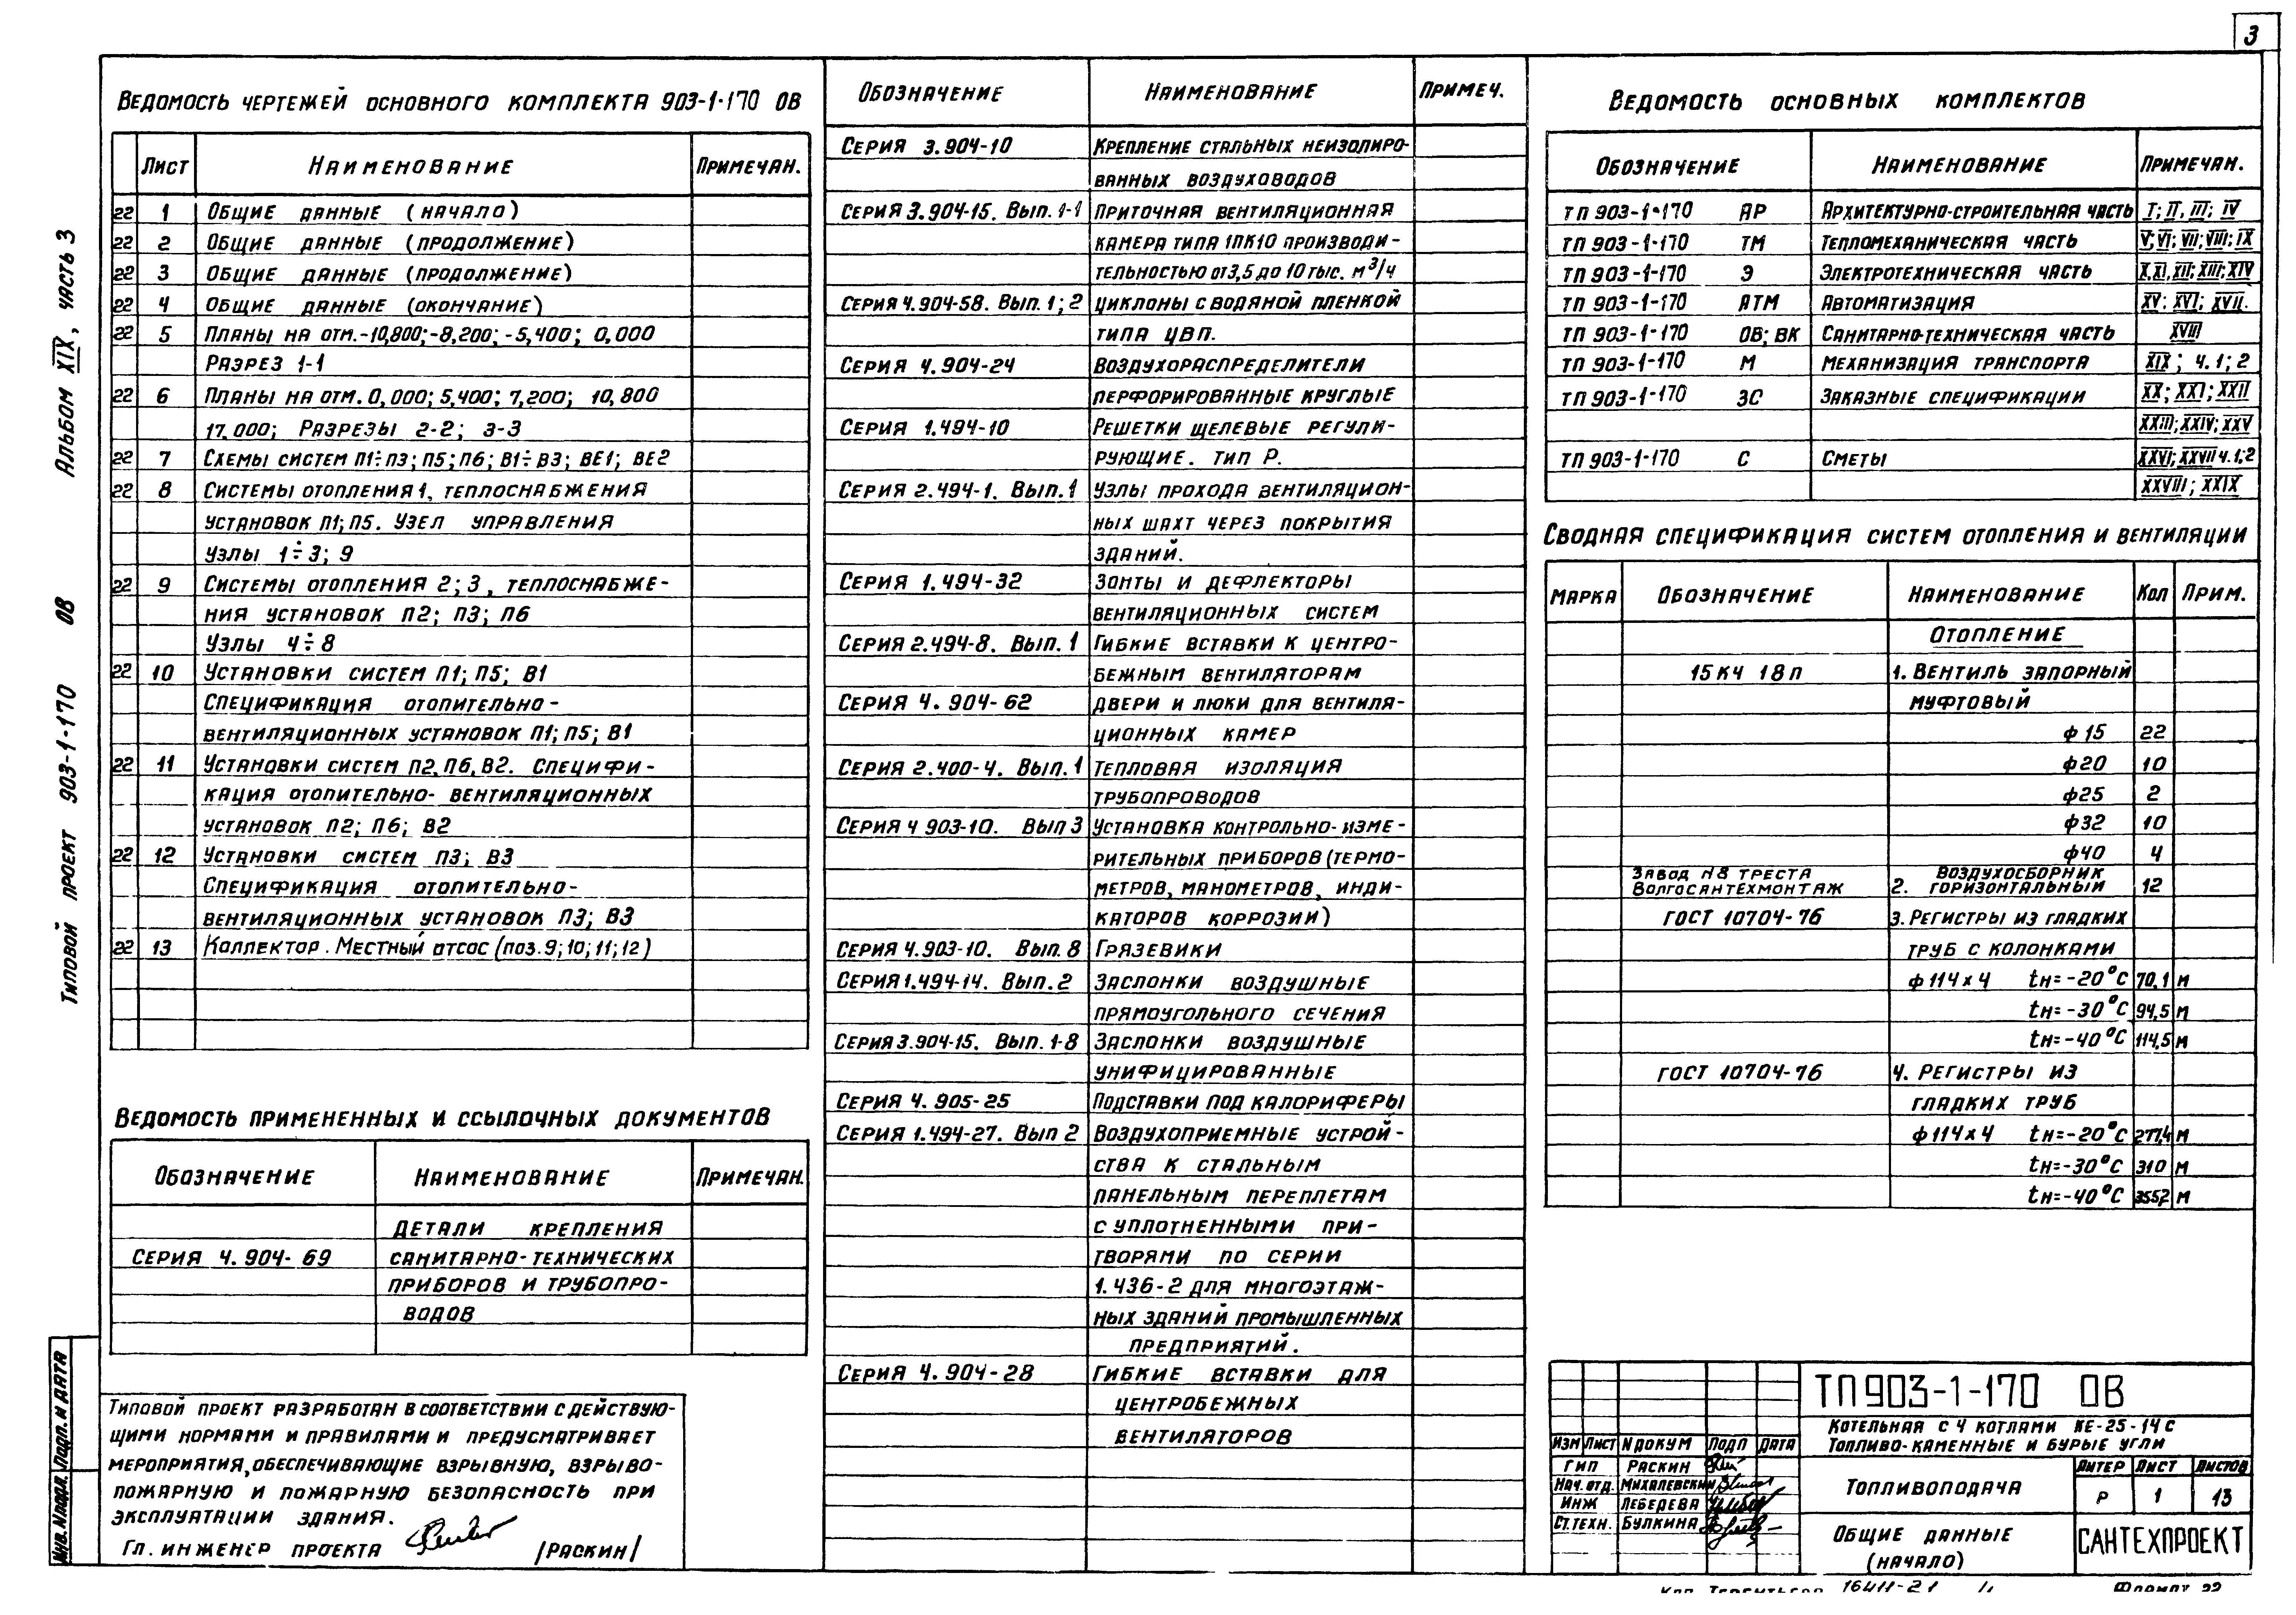 3
Альбом XIX, часть 3
Типовой проект 903-1-170 ОВ
Инв.N подл. Подп. и дата
Ведомость чертежей основного комплекта 903-1-170 ОВ
Лист Наименование Примечан.
22 1 Общие данные (начало)
22 2 Общие данные (продолжение)
22 3 Общие данные (продолжение)
22 4 Общие данные (окончание)
22 5 Планы на отм.-10,800;-8,200;-5,400; 0,000
Разрез 1-1
22 6 Планы на отм. 0,000; 5,400; 7,200; 10,800
17.000; Разрезы 2-2; 3-3
22 7 Схемы систем П1÷П3; П5; П6; В1÷В3; ВЕ1; ВЕ2
22 8 Системы отопления 1, теплоснабжения
установок П1; П5. Узел управления
Узлы 1÷3; 9
22 9 Системы отопления 2; 3, теплоснабже-
ния установок П2; П3; П6
Узлы 4÷8
22 10 Установки систем П1; П5; В1
Спецификация отопительно-
вентиляционных установок П1; П5; В1
22 11 Установки систем П2, П6, В2. Специфи-
кация отопительно-вентиляционных
установок П2; П6; В2
22 12 Установки систем П3; В3
Спецификация отопительно-
вентиляционных установок П3; В3
22 13 Коллектор. Местный отсос (поз. 9; 10; 11; 12)
Ведомость примененных и ссылочных документов
Обозначение Наименование Примечан.
Детали крепления
Серия 4.904-69 санитарно-технических
приборов и трубопро-
водов
Типовой проект разработан в соответствии с действую-
щими нормами и правилами и предусматривает
мероприятия, обеспечивающие взрывную, взрыво-
пожарную и пожарную безопасность при
эксплуатации здания.
Гл. инженер проекта /Раскин/
Обозначение Наименование Примеч.
Серия 3.904-10 Крепление стальных неизолиро-
ванных воздуховодов
Серия 3.904-15. Вып. 1-1 Приточная вентиляционная
камера типа 1ПК10 производи-
тельностью от 3,5 до 10 тыс. м³/ч
Серия 4.904-58. Вып. 1; 2 Циклоны с водяной пленкой
типа ЦВП.
Серия 4.904-24 Воздухораспределители
перфорированные круглые
Серия 1.494-10 Решетки щелевые регули-
рующие. Тип Р.
Серия 2.494-1. Вып. 1 Узлы прохода вентиляцион-
ных шахт через покрытия
зданий.
Серия 1.494-32 Зонты и дефлекторы
вентиляционных систем
Серия 2.494-8. Вып. 1 Гибкие вставки к центро-
бежным вентиляторам
Серия 4.904-62 Двери и люки для вентиля-
ционных камер
Серия 2.400-4. Вып. 1 Тепловая изоляция
трубопроводов
Серия 4 903-10. Вып 3 Установка контрольно-изме-
рительных приборов (термо-
метров, манометров, инди-
каторов коррозии)
Серия 4.903-10. Вып. 8 Грязевики
Серия 1.494-14. Вып. 2 Заслонки воздушные
прямоугольного сечения
Серия 3.904-15. Вып. 1-8 Заслонки воздушные
унифицированные
Серия 4.905-25 Подставки под калориферы
Серия 1.494-27. Вып 2 Воздухоприемные устрой-
ства к стальным
панельным переплетам
с уплотненными при-
творами по серии
1.436-2 для многоэтаж-
ных зданий промышленных
предприятий.
Серия 4.904-28 Гибкие вставки для
центробежных
вентиляторов
Ведомость основных комплектов
Обозначение Наименование Примечан.
ТП 903-1-170 АР Архитектурно-строительная часть I; II, III; IV
ТП 903-1-170 ТМ Тепломеханическая часть V; VI; VII; VIII; IX
ТП 903-1-170 Э Электротехническая часть X, XI, XII; XIII; XIV
ТП 903-1-170 АТМ Автоматизация XV; XVI; XVII.
ТП 903-1-170 ОВ; ВК Санитарно-техническая часть XVIII
ТП 903-1-170 М Механизация транспорта XIX; ч. 1; 2
ТП 903-1-170 ЗС Заказные спецификации XX; XXI; XXII
XXIII; XXIV; XXV
ТП 903-1-170 С Сметы XXVI; XXVII ч. 1; 2
XXVIII; XXIX
Сводная спецификация систем отопления и вентиляции
Марка Обозначение Наименование Кол Прим.
Отопление
15кч 18п 1. Вентиль запорный
муфтовый
ф 15 22
ф20 10
ф25 2
ф32 10
ф40 4
Завод N8 треста Воздухосборник
Волгосантехмонтаж 2. горизонтальный 12
ГОСТ 10704-76 3. Регистры из гладких
труб с колонками
ф 114х4 tн=-20°С 70,1 м
tн=-30°С 94,5 м
tн=-40°С 114,5 м
ГОСТ 10704-76 4. Регистры из
гладких труб
ф 114х4 tн=-20°С 277,4 м
tн=-30°С 310 м
tн=-40°С 355,2 м
ТП 903-1-170 ОВ
Котельная с 4 котлами КЕ-25-14с
Топливо-каменные и бурые угли
Изм Лист N докум Подп Дата
ГИП Раскин
Нач. отд. Михалевский
Инж Лебедева
Ст. техн. Булкина
Топливоподача
Литер Лист Листов
Р 1 13
Общие данные
(начало)
САНТЕХПРОЕКТ
16411-21
Формат 22